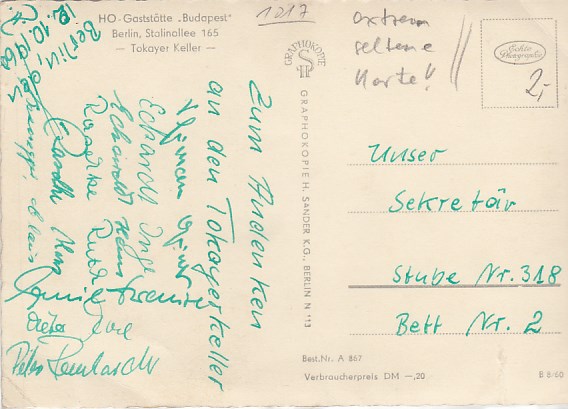 HO - Gaststätte „Budapest"
Berlin, Stalinallee 165
— Tokayer Keller —
1017
extrem
seltene
Karte!!
Echte
Photographie
2,-
GRAPHOKOPIE
GRAPHOKOPIE H. SANDER K.G., BERLIN N 113
Berlin,
12.10.1960
Zum Andenken
an den Tokayerkeller
Eckardt Inge
Schmidt Hans
Raschke Ruth
Peter Lenhardt
Unser
Sekretär
Stube Nr. 318
Bett Nr. 2
Best.Nr. A 867
Verbraucherpreis DM —,20
B 8/60